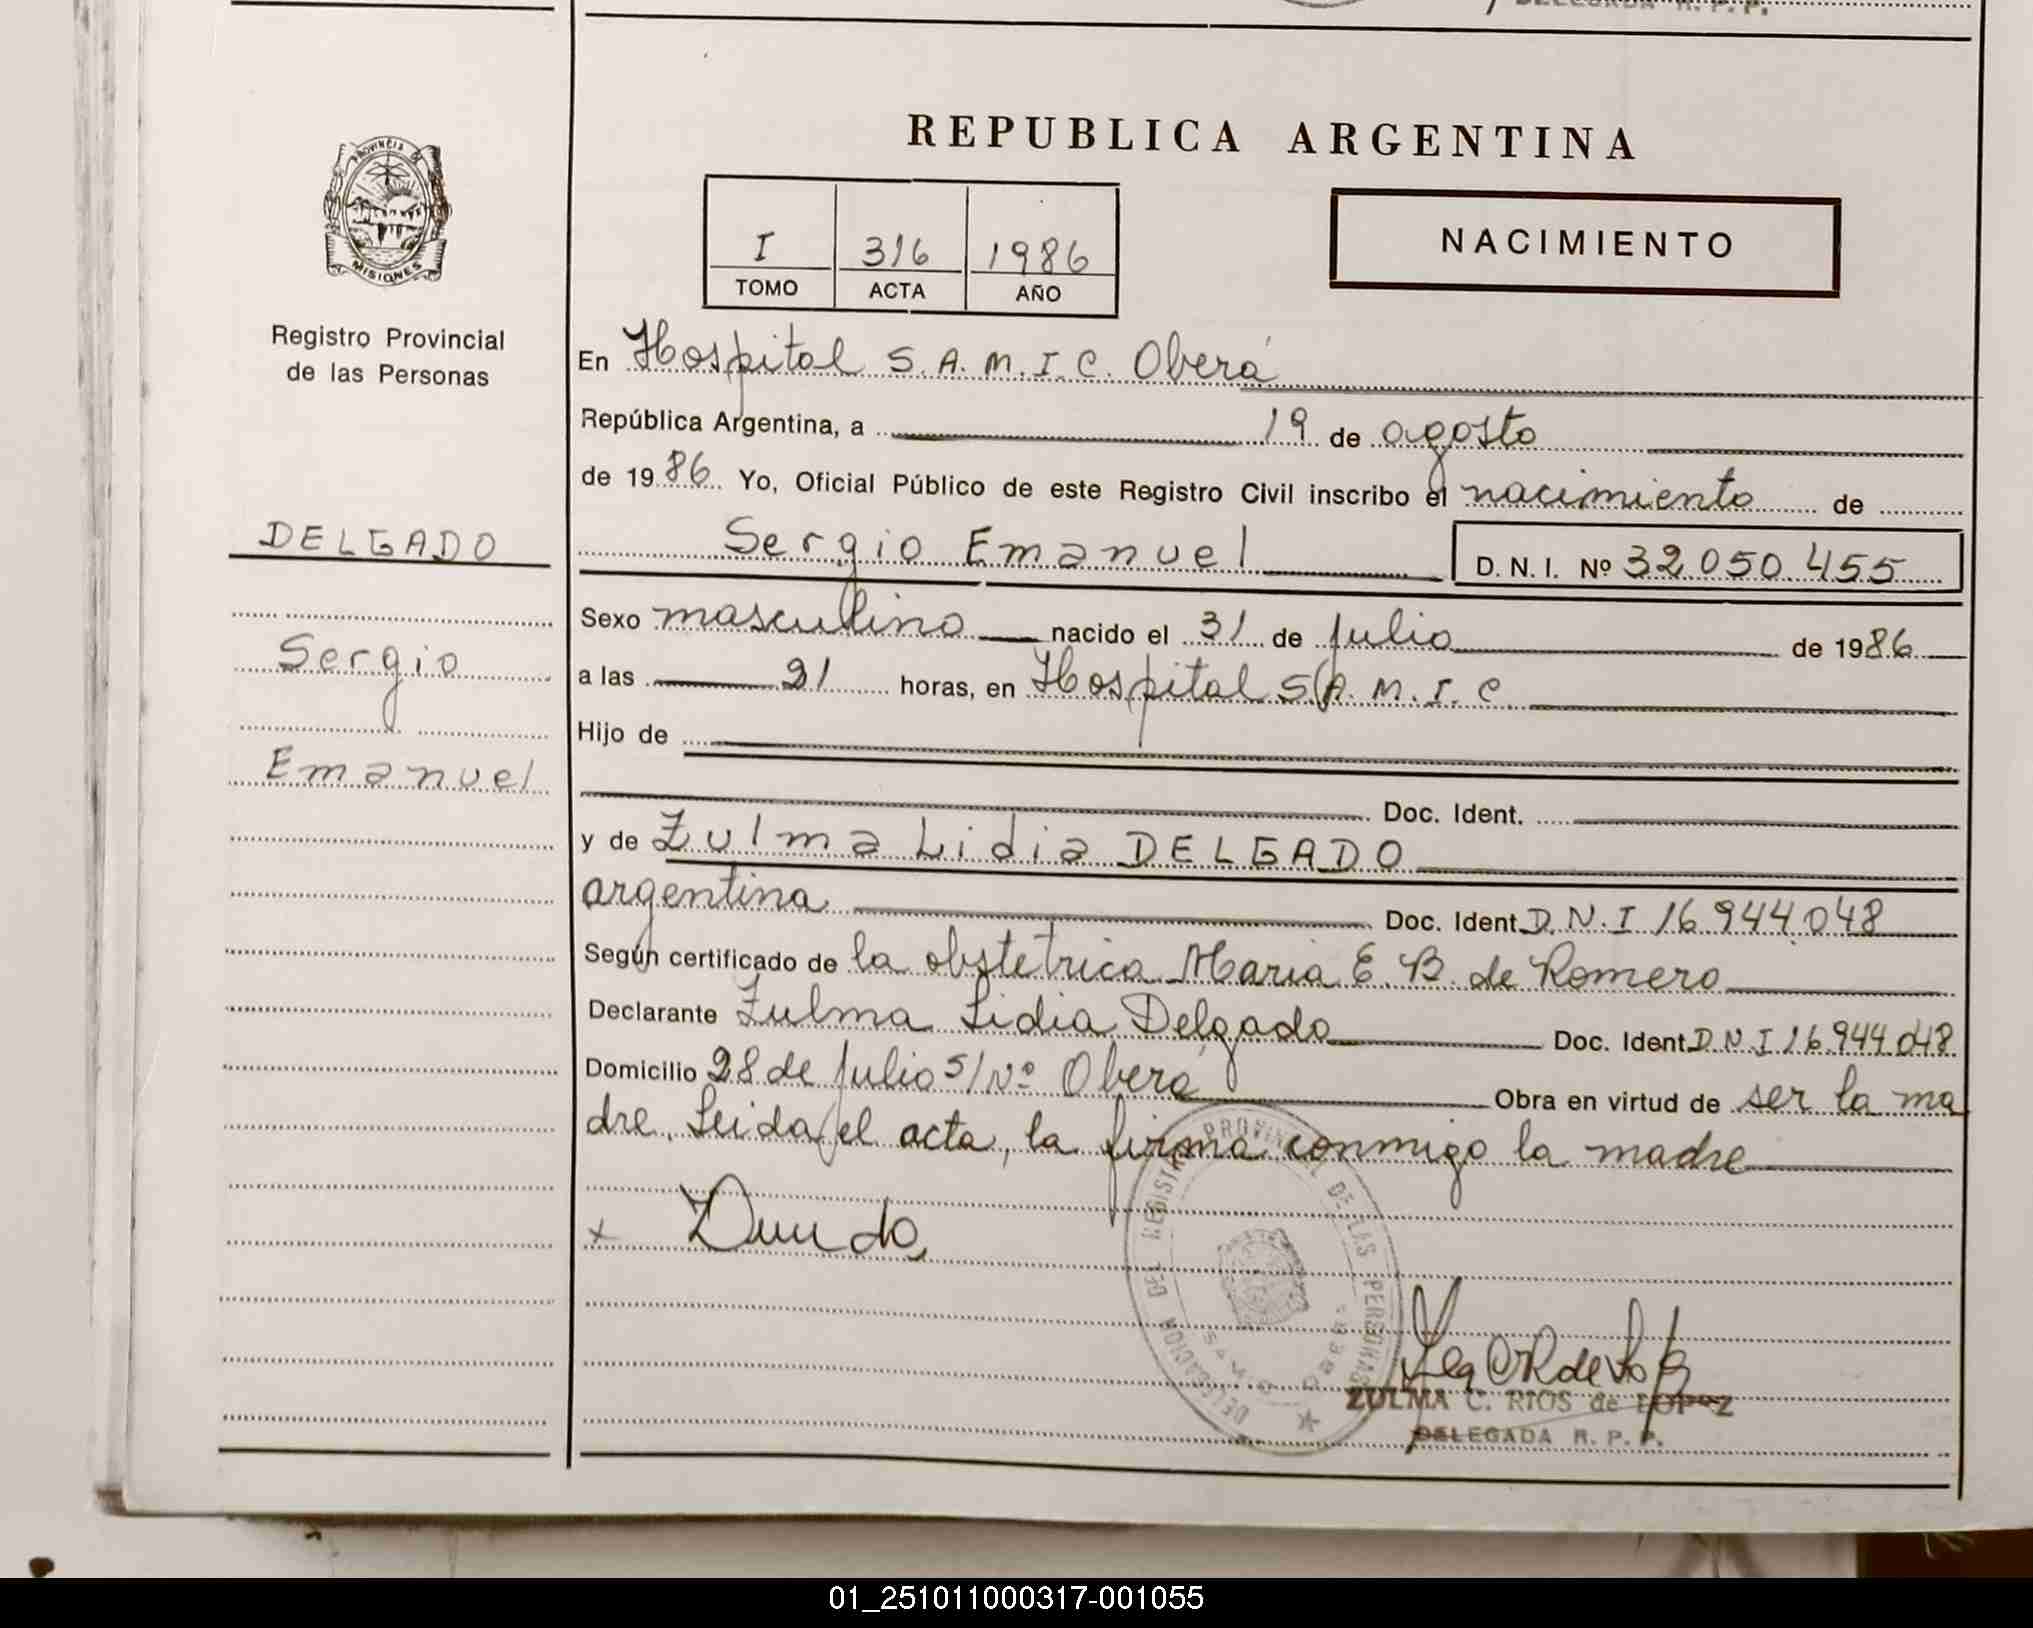 DELEGADA R. P. P.
PROVINCIA DE
MISIONES
Registro Provincial
de las Personas
DELGADO
Sergio
Emanuel
REPUBLICA ARGENTINA
I 316 1986
TOMO ACTA AÑO
NACIMIENTO
En Hospital S. A. M. I. C. Oberá
República Argentina, a 19 de agosto
de 1986 Yo, Oficial Público de este Registro Civil inscribo el nacimiento de
Sergio Emanuel D. N. I. Nº 32.050.455
Sexo masculino nacido el 31 de julio de 1986
a las 21 horas, en Hospital S. A. M. I. C.
Hijo de
Doc. Ident.
y de Zulma Lidia DELGADO
argentina Doc. Ident. D. N. I 16.944.048
Según certificado de la obstetrica Maria E. B. de Romero
Declarante Zulma Lidia Delgado Doc. Ident. D. N. I 16.944.048
Domicilio 28 de julio s/Nº Oberá Obra en virtud de ser la ma
dre. Leida el acta, la firma conmigo la madre
x
DELEGACION DEL REGISTRO PROVINCIAL DE LAS PERSONAS
ZULMA C. RIOS de LOPEZ
DELEGADA R. P. P.
01_251011000317-001055